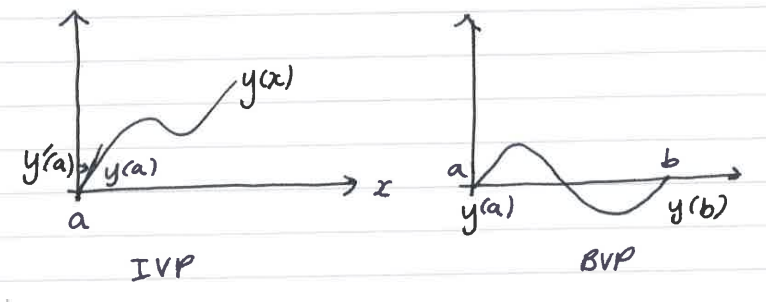 y(x)
y'(a)
y(a)
x
a
IVP
a
b
y(a)
y(b)
BVP